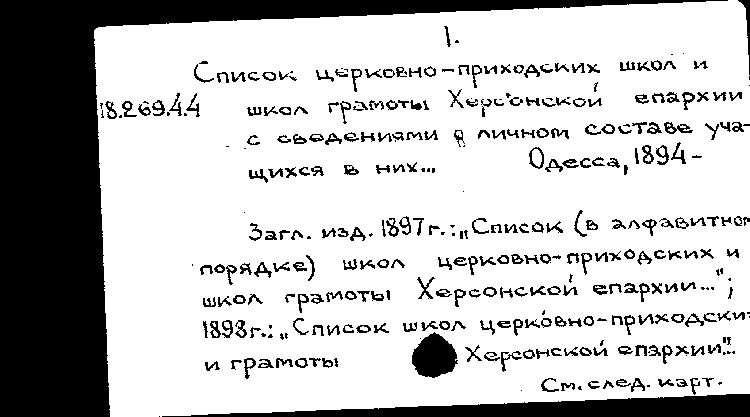 1.
Список церковно-приходских школ и
18.269.4.4 школ грамоты Херсонской епархии
с сведениями о личном составе уча-
щихся в них... Одесса, 1894-
Загл. изд. 1897 г.: „Список (в алфавитном
порядке) школ церковно-приходских и
школ грамоты Херсонской епархии...";
1898 г.: „Список школ церковно-приходских
и грамоты Херсонской епархии".
См. след. карт.